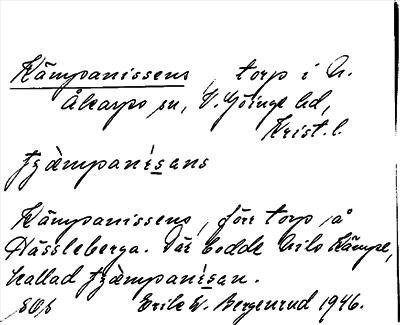 Kämpanissens, torp i N.
Åkarps sn, V. Göinge hd,
Krist. l.
tʒæ̀mpanísans
Kämpanissens, förr torp på
Hässleberga. Där bodde Nils Kämpe,
kallad tʒæ̀mpanísan.
Erik W. Bergenrud 1946.